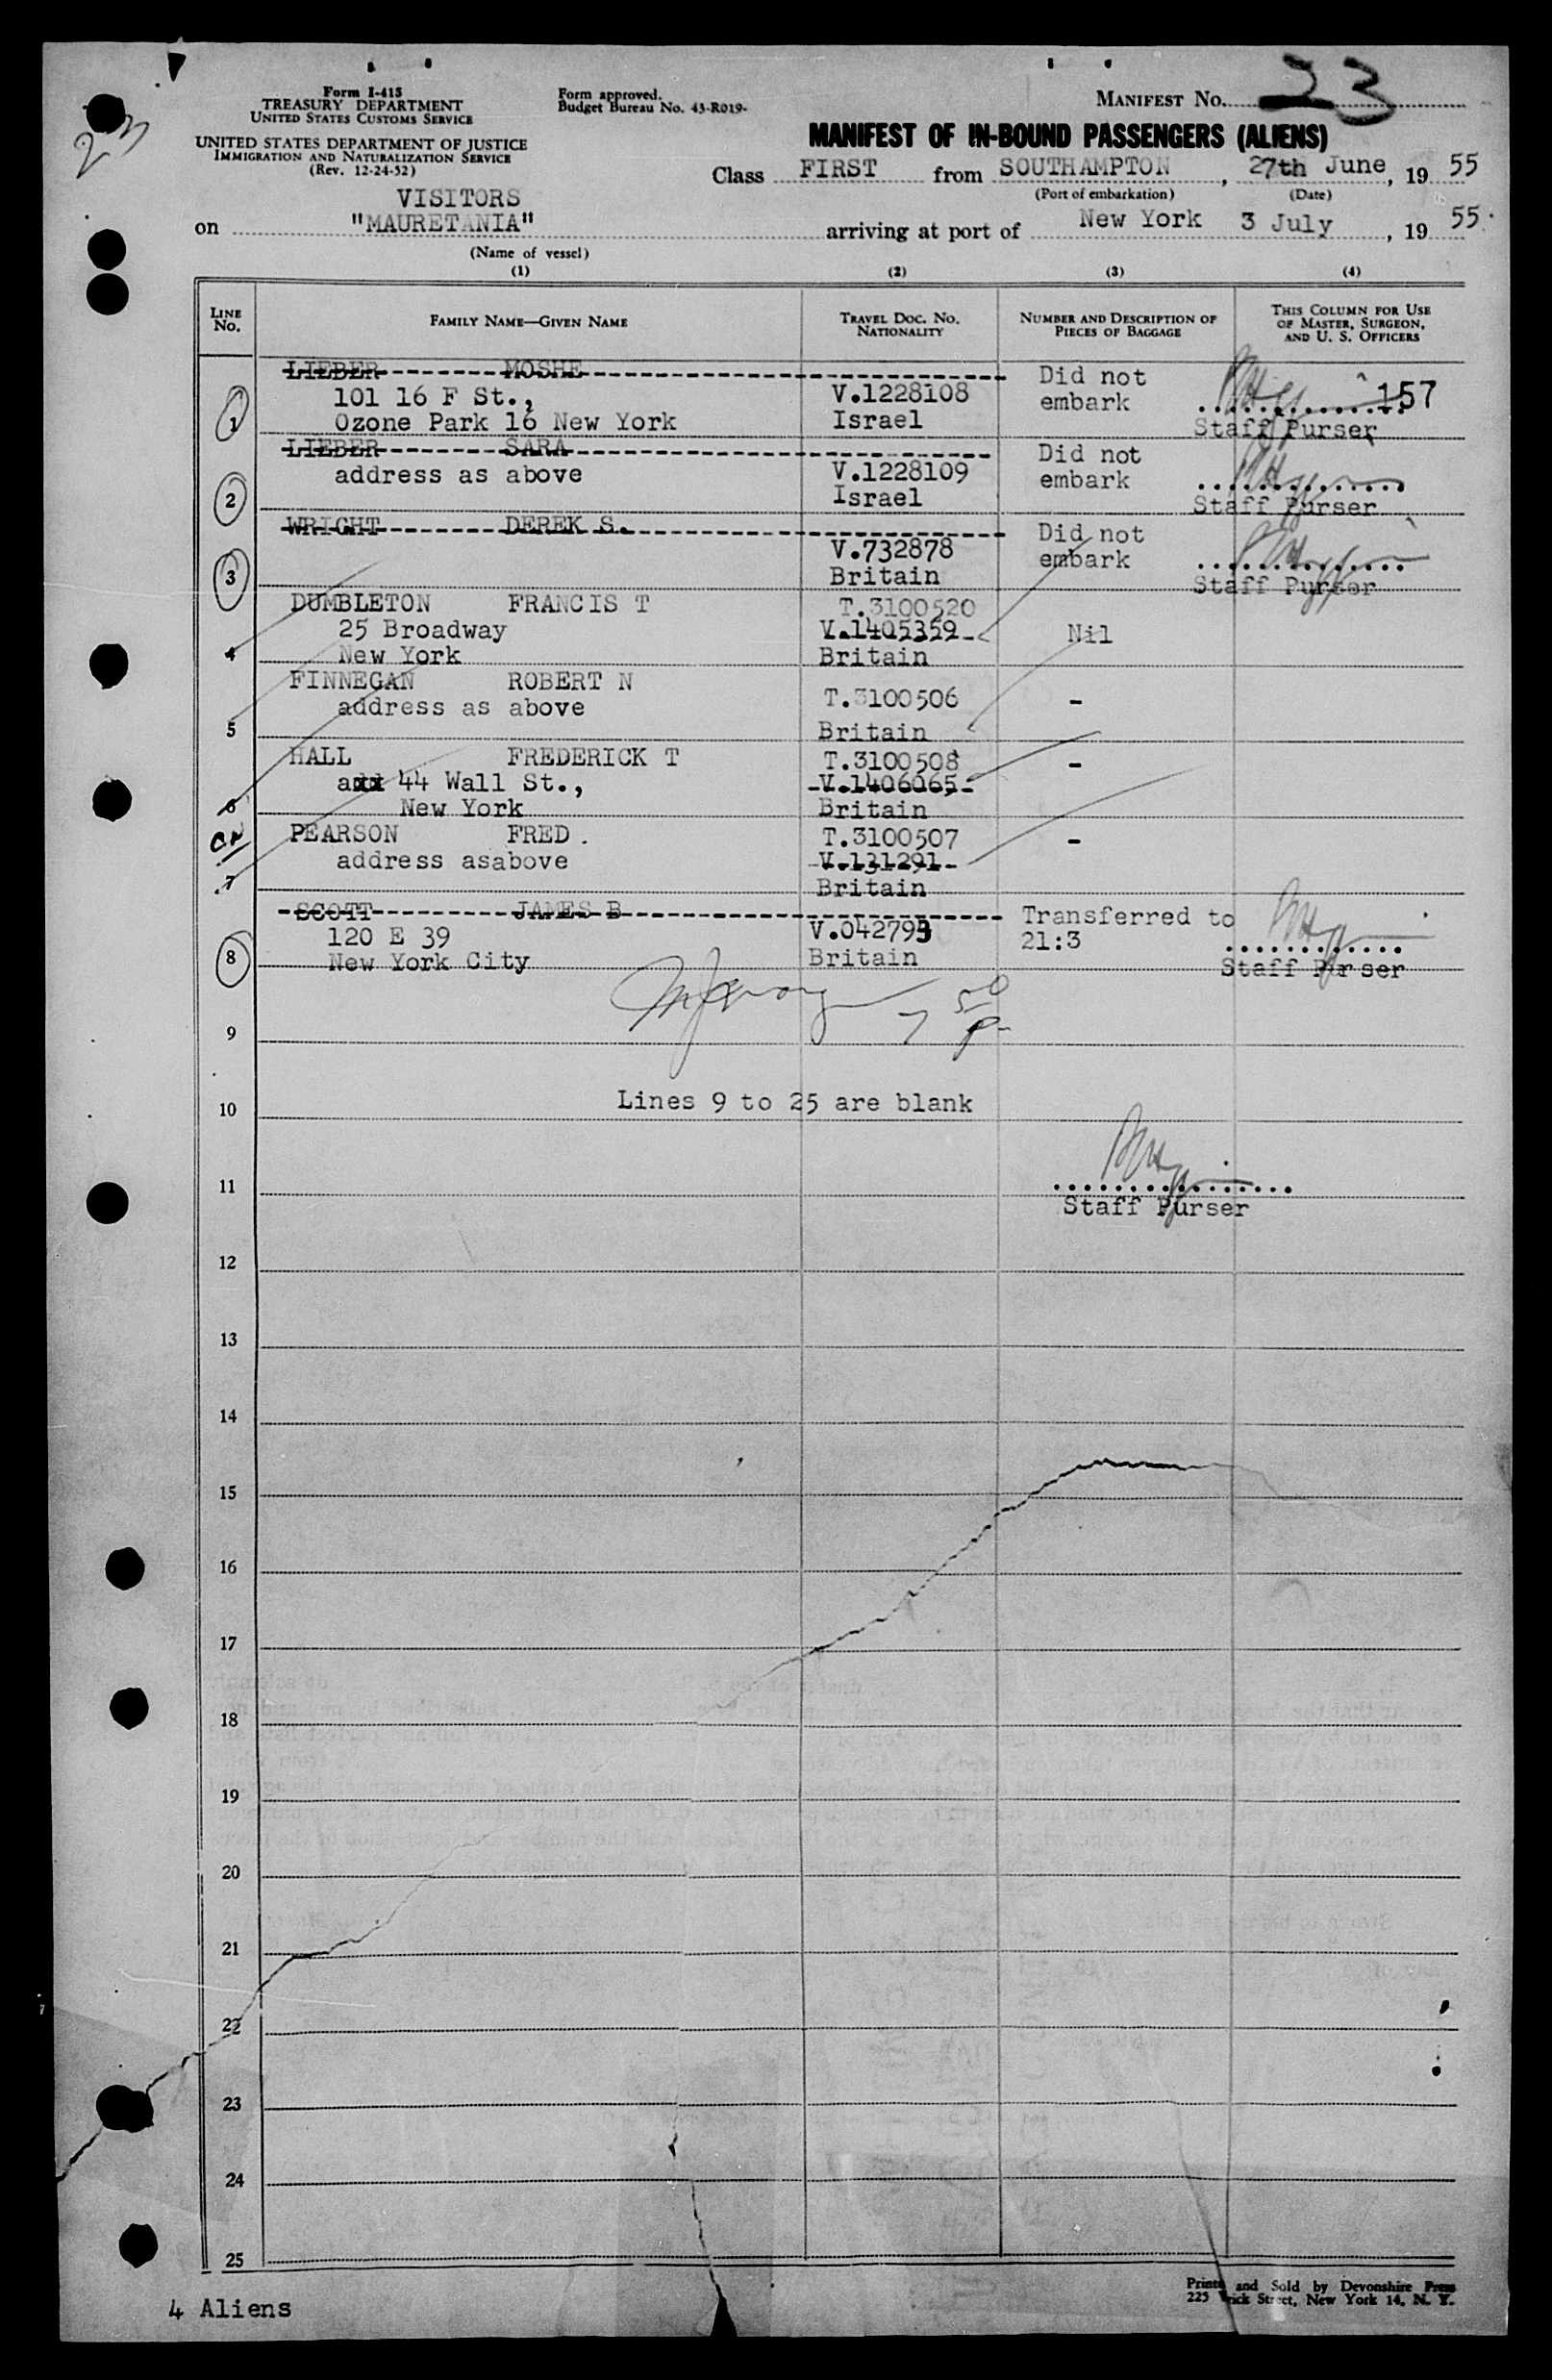 23
Form I-415
TREASURY DEPARTMENT
UNITED STATES CUSTOMS SERVICE
UNITED STATES DEPARTMENT OF JUSTICE
IMMIGRATION AND NATURALIZATION SERVICE
(Rev. 12-24-52)
Form approved.
Budget Bureau No. 43-R019-
MANIFEST No. 23
MANIFEST OF IN-BOUND PASSENGERS (ALIENS)
Class FIRST from SOUTHAMPTON, 27th June, 19 55
(Port of embarkation) (Date)
VISITORS
on "MAURETANIA" arriving at port of New York 3 July, 19 55.
(Name of vessel)
(1) (2) (3) (4)
LINE No. FAMILY NAME—GIVEN NAME TRAVEL DOC. NO. NATIONALITY NUMBER AND DESCRIPTION OF PIECES OF BAGGAGE THIS COLUMN FOR USE OF MASTER, SURGEON, AND U. S. OFFICERS
LIEBER MOSHE Did not
101 16 F St., V.1228108 embark 157
1 Ozone Park 16 New York Israel Staff Purser
LIEBER SARA Did not
address as above V.1228109 embark
2 Israel Staff Purser
WRIGHT DEREK S. Did not
V.732878 embark
3 Britain Staff Purser
DUMBLETON FRANCIS T T.3100520
25 Broadway V.1405359 Nil
4 New York Britain
FINNEGAN ROBERT N T.3100506 -
address as above
5 Britain
HALL FREDERICK T T.3100508 -
axx 44 Wall St., V.1406065
6 New York Britain
PEARSON FRED. T.3100507 -
address asabove V.131291
7 Britain
SCOTT JAMES B Transferred to
120 E 39 V.042793 21:3
8 New York City Britain Staff Purser
7 50
9
P-
10 Lines 9 to 25 are blank
11
Staff Purser
12
13
14
15
16
17
18
19
20
21
22
23
24
25
4 Aliens
and Sold by Devonshire Press
225 Street, New York 14, N. Y.